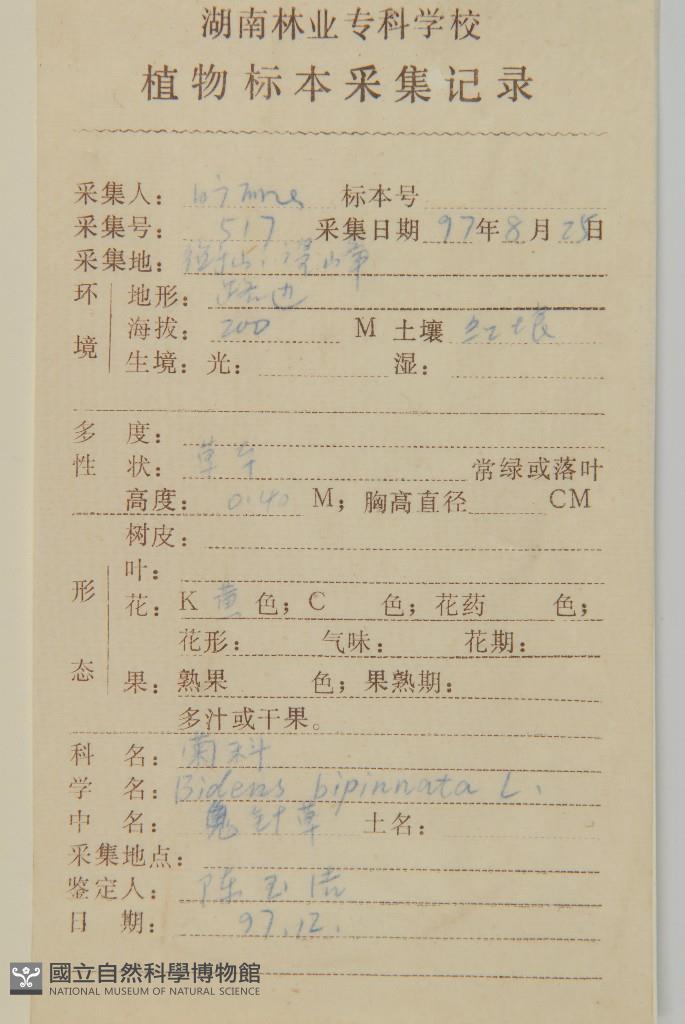 湖南林业专科学校
植物标本采集记录
采集人: 标本号
采集号: 517 采集日期 97年8月25日
采集地:
环境 地形: 路边
海拔: 200 M 土壤 红壤
生境: 光: 湿:
多度:
性状: 草本 常绿或落叶
高度: 0.40 M; 胸高直径 CM
树皮:
形态 叶:
花: K 黄 色; C 色; 花药 色;
花形: 气味: 花期:
果: 熟果 色; 果熟期:
多汁或干果。
科名: 菊科
学名: Bidens bipinnata L.
中名: 鬼针草 土名:
采集地点:
鉴定人: 陈玉洁
日期: 97.12.
國立自然科學博物館
NATIONAL MUSEUM OF NATURAL SCIENCE